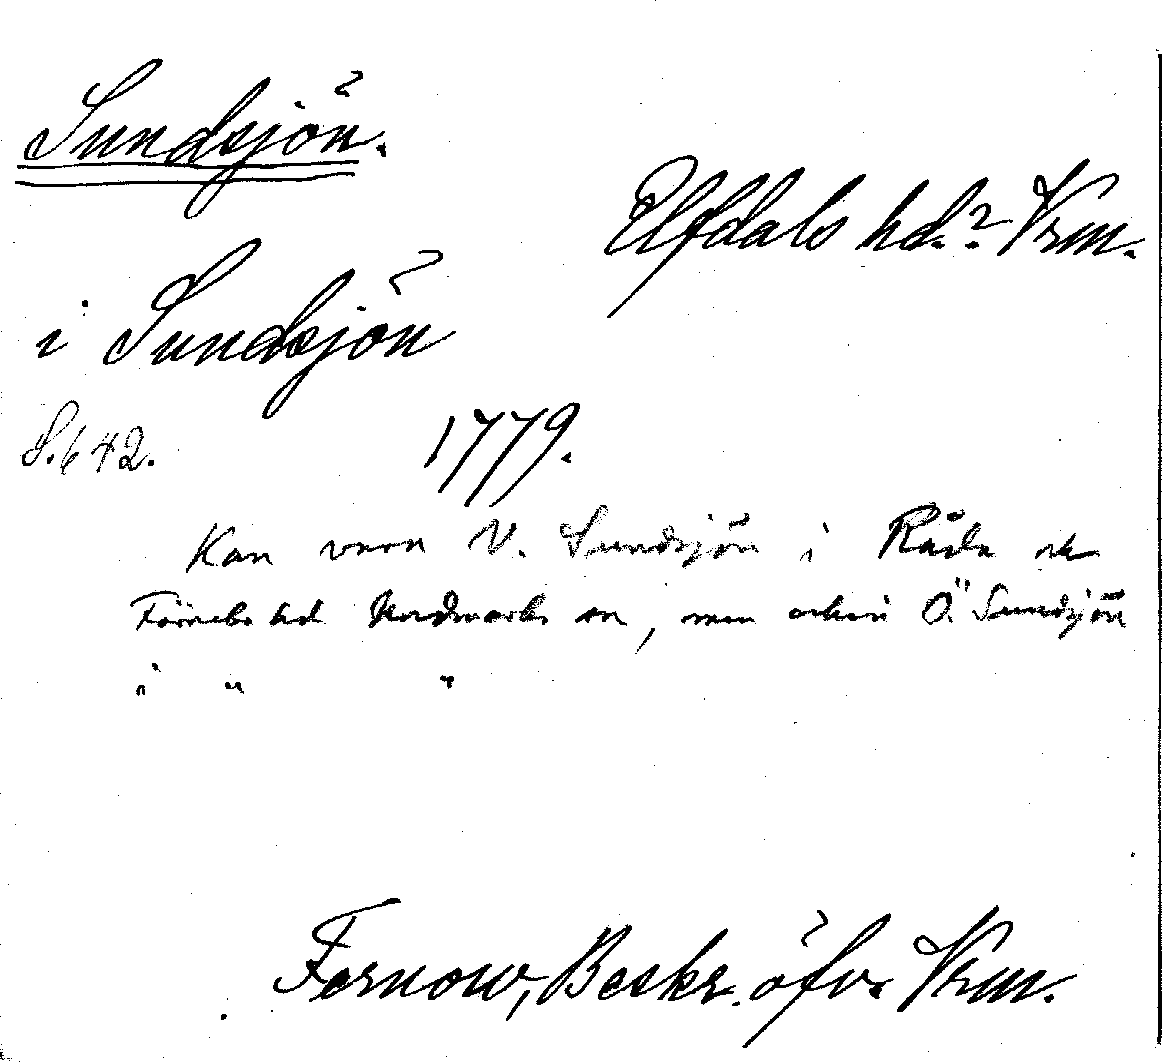 Sundsjön.
Elfdals hd.? Vrm.
i Sundsjön
S. 642.
1779.
Kan vara V. Sundsjön i Råda och
Färnebo hd Nordmarks sn, men också Ö. Sundsjön
i " "
Fernow, Beskr. öfv. Vrm.